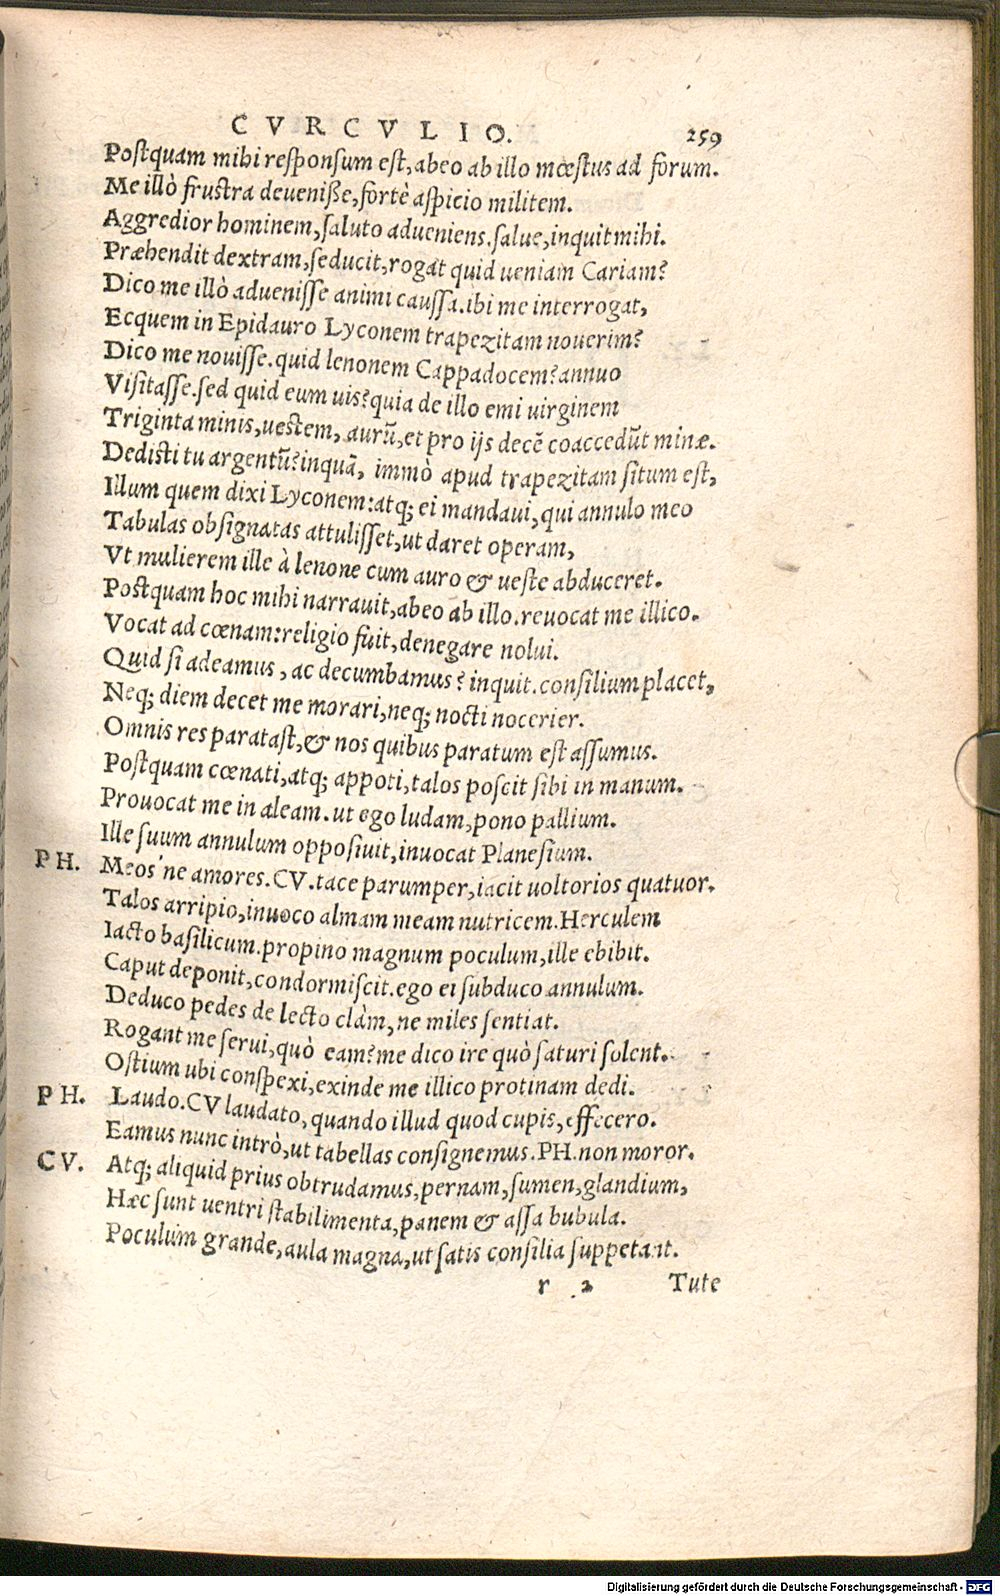 CVRCVLIO. 259
Postquam mihi responsum est, abeo ab illo mœstus ad forum.
Me illò frustra deuenisse, fortè aspicio militem.
Aggredior hominem, saluto adueniens. salue, inquit mihi.
Præhendit dextram, seducit, rogat quid ueniam Cariam?
Dico me illò aduenisse animi caussa. ibi me interrogat,
Ecquem in Epidauro Lyconem trapezitam nouerim?
Dico me nouisse. quid lenonem Cappadocem? annuo
Visitasse. sed quid eum uis? quia de illo emi uirginem
Triginta minis, uestem, aurū, et pro ijs decē coaccedūt minæ.
Dedisti tu argentū? inquā, immò apud trapezitam situm est,
Illum quem dixi Lyconem: atq; ei mandaui, qui annulo meo
Tabulas obsignatas attulisset, ut daret operam,
Vt mulierem ille à lenone cum auro & ueste abduceret.
Postquam hoc mihi narrauit, abeo ab illo. reuocat me illico.
Vocat ad cœnam: religio fuit, denegare nolui.
Quid si adeamus, ac decumbamus? inquit. consilium placet,
Neq; diem decet me morari, neq; nocti nocerier.
Omnis res paratast, & nos quibus paratum est assumus.
Postquam cœnati, atq; appoti, talos poscit sibi in manum.
Prouocat me in aleam. ut ego ludam, pono pallium.
Ille suum annulum opposiuit, inuocat Planesium.
PH. Meos'ne amores. CV. tace parumper, iacit uoltorios quatuor.
Talos arripio, inuoco almam meam nutricem. Herculem
Iacto basilicum. propino magnum poculum, ille ebibit.
Caput deponit, condormiscit. ego ei subduco annulum.
Deduco pedes de lecto clàm, ne miles sentiat.
Rogant me serui, quò eam? me dico ire quò saturi solent.
Ostium ubi conspexi, exinde me illico protinam dedi.
PH. Laudo. CV laudato, quando illud quod cupis, effecero.
Eamus nunc intrò, ut tabellas consignemus. PH. non moror.
CV. Atq; aliquid prius obtrudamus, pernam, sumen, glandium,
Hæc sunt uentri stabilimenta, panem & assa bubula.
Poculum grande, aula magna, ut satis consilia suppetant.
r 2 Tute
Digitalisierung gefördert durch die Deutsche Forschungsgemeinschaft - DFG